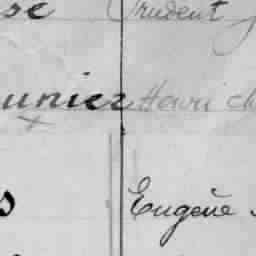 se Prudent
unier Henri Ch
s Eugène